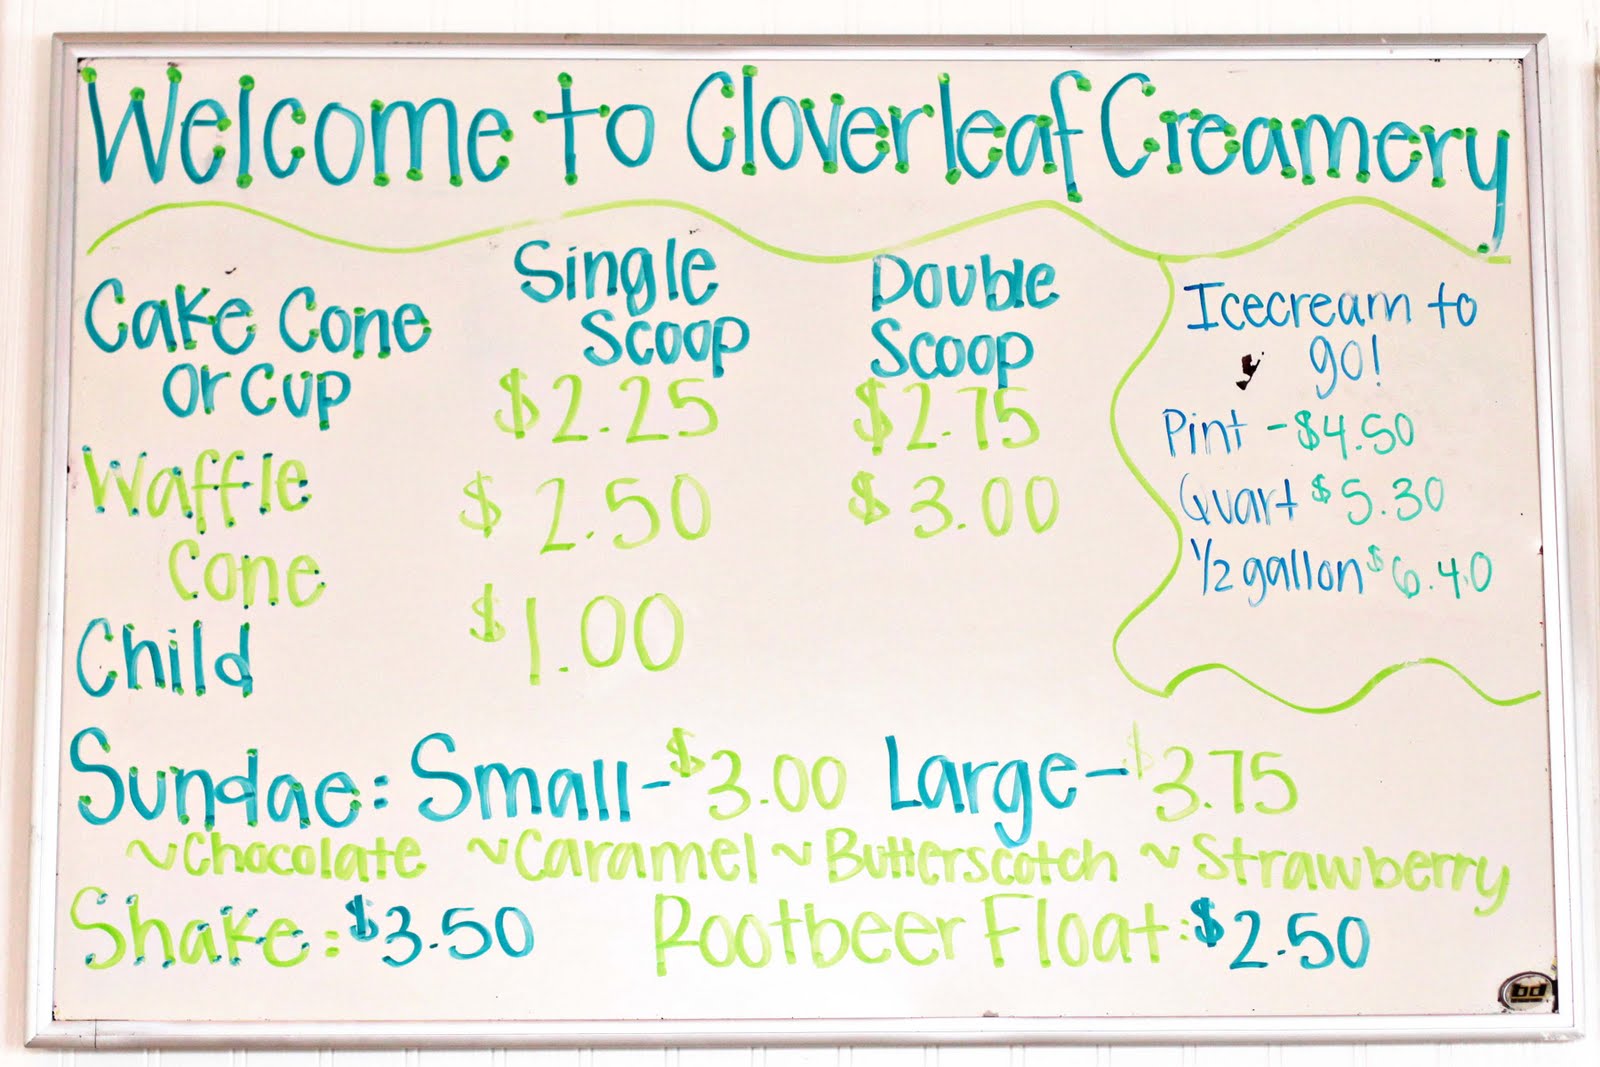 Welcome to Cloverleaf Creamery
Single Scoop
Double Scoop
Cake Cone or Cup $2.25 $2.75
Waffle Cone $2.50 $3.00
Child $1.00
Icecream to go!
Pint - $4.50
Quart $5.30
1/2 gallon $6.40
Sundae: Small - $3.00 Large - $3.75
~Chocolate ~Caramel ~Butterscotch ~Strawberry
Shake: $3.50 Rootbeer Float: $2.50
bd